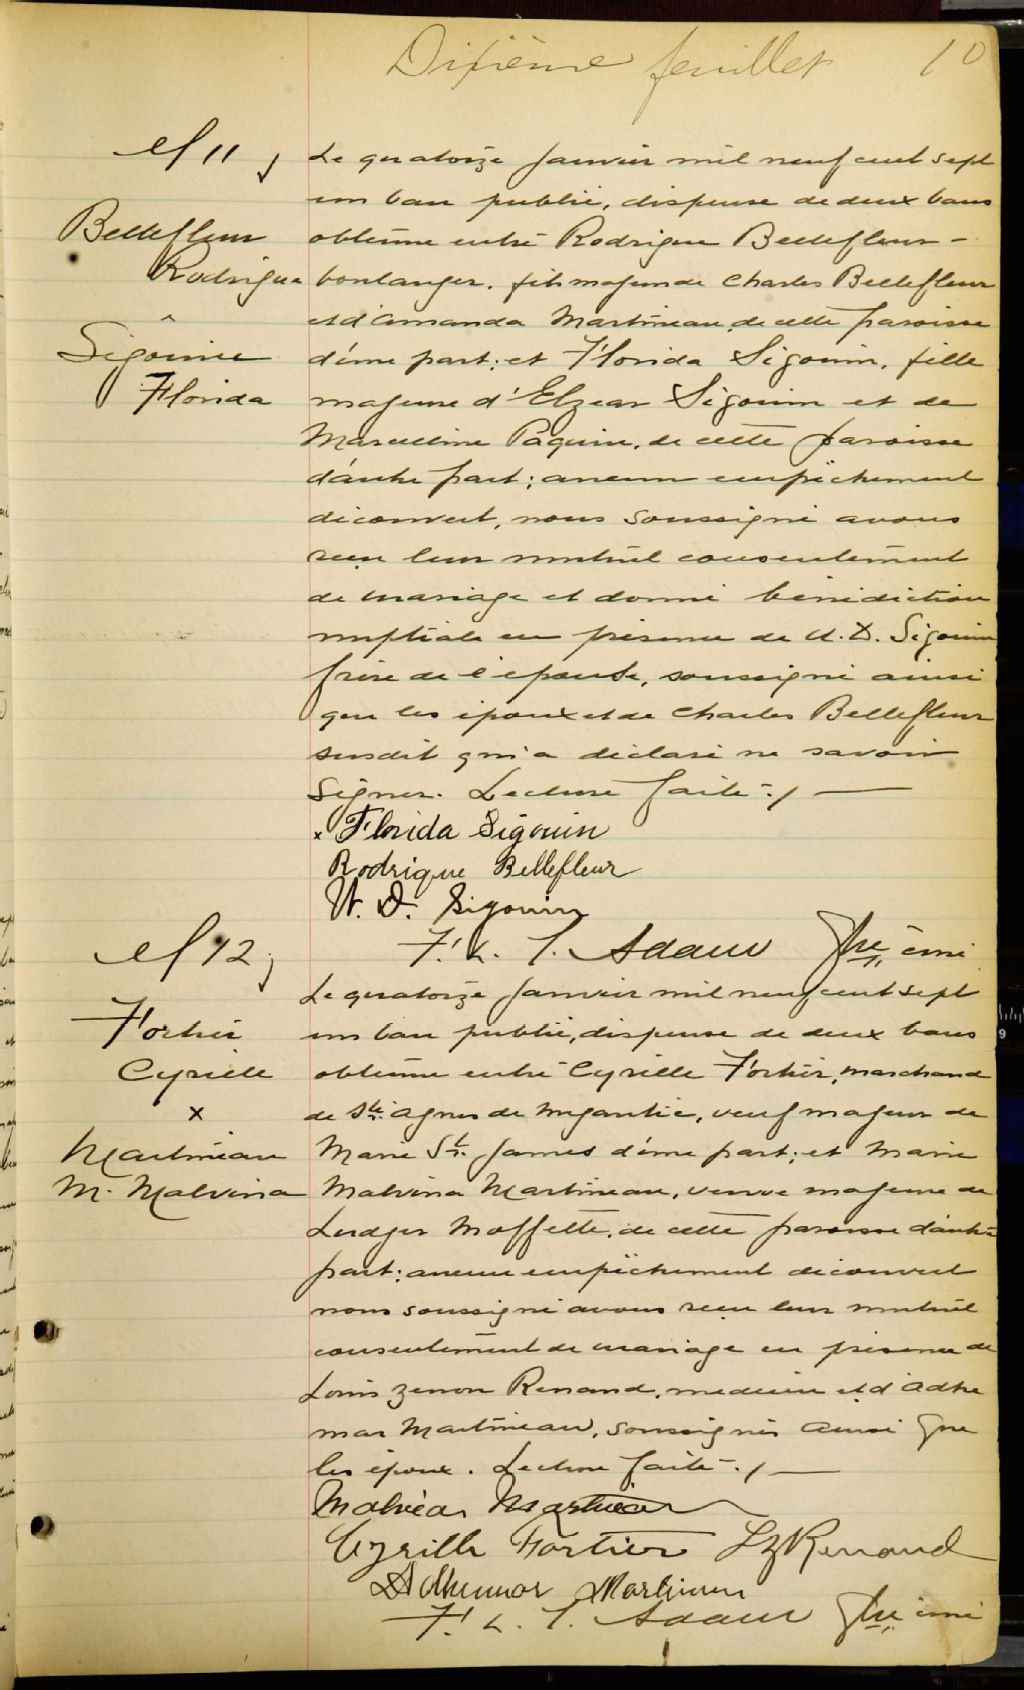 Dixième feuillet 10
M 11
Bellefleur
Rodrigue
Sigouin
Florida
Le quatorze Janvier mil neuf cent sept
un ban publié, dispense de deux bans
obtenue entre Rodrigue Bellefleur -
boulanger, fils majeur de Charles Bellefleur
et d'Amanda Martineau, de cette paroisse
d'une part; et Florida Sigouin, fille
majeure d'Elzear Sigouin et de
Marcelline Paquin, de cette paroisse
d'autre part; aucun empêchement
découvert, nous soussigné avons
reçu leur mutuel consentement
de mariage et donné bénédiction
nuptiale en présence de U. D. Sigouin
frère de l'épouse, soussigné ainsi
que les époux et de Charles Bellefleur
susdit qui a déclaré ne savoir
signer. Lecture faite./ —
x Florida Sigouin
Rodrigue Bellefleur
U. D. Sigouin
F. L. T. Adam Ptre curé
M 12
Fortier
Cyrille
x
Martineau
M. Malvina
Le quatorze Janvier mil neuf cent sept
un ban publié, dispense de deux bans
obtenue entre Cyrille Fortier, marchand
de Ste Agnes de Megantic, veuf majeur de
Marie St. James d'une part; et Marie
Malvina Martineau, veuve majeure de
Ludger Moffette, de cette paroisse d'autre
part; aucun empêchement découvert
nous soussigné avons reçu leur mutuel
consentement de mariage en présence de
Louis Zenon Renaud, medecin et d'Adhe
mar Martineau, soussignés ainsi que
les époux. Lecture faite./ —
Malvina Martineau
Cyrille Fortier LZ Renaud
Adhemar Martineau
F. L. T. Adam Ptre curé